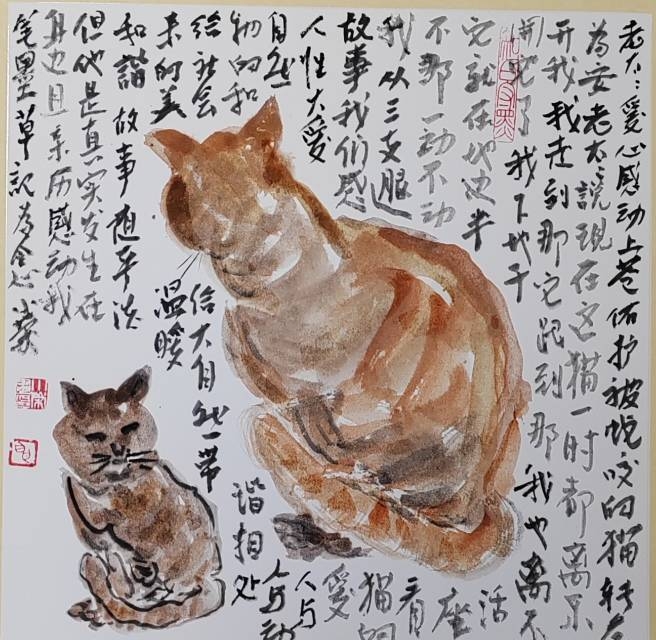 老太：愛心感动上苍保护被蛇咬的猫转
为安老太説現在这猫一时都离不
开我我走到那它跟到那我也离不
开它了我下地干
活
它就在地边半
座
不那一动不动
看
我从三支
猫的
故事我们感
愛
人性大爱
人与
自然
人与动
物的和
谐相处
给社会
给大自然一带
来的美
温暖
和諧 故事虽平淡
但他是真实发生在
身边且亲历感动我
笔墨草記